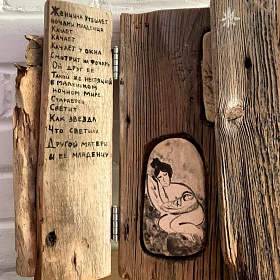 Женщина утешает
ночами младенца
Качает
Качает
Качает у окна
Смотрит на фонарь
Ой друг её
Такой же неспящий
в маленьком
ночном мире.
Старается
Светит
Как звезда
Что светила
Другой матери
и её младенцу